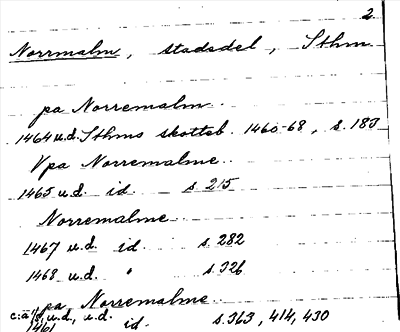 2
Norrmalm, stadsdel, Sthm
pa Norremalm
1464 u.d. Sthms skotteb. 1460-68, s. 183
Vpa Norremalme
1465 u.d. id. s. 215
Norremalme
1467 u.d. id. s. 282
1468 u.d. " s. 326
pa Norremalme
u.d., u.d.
1461 id. s. 363, 414, 430